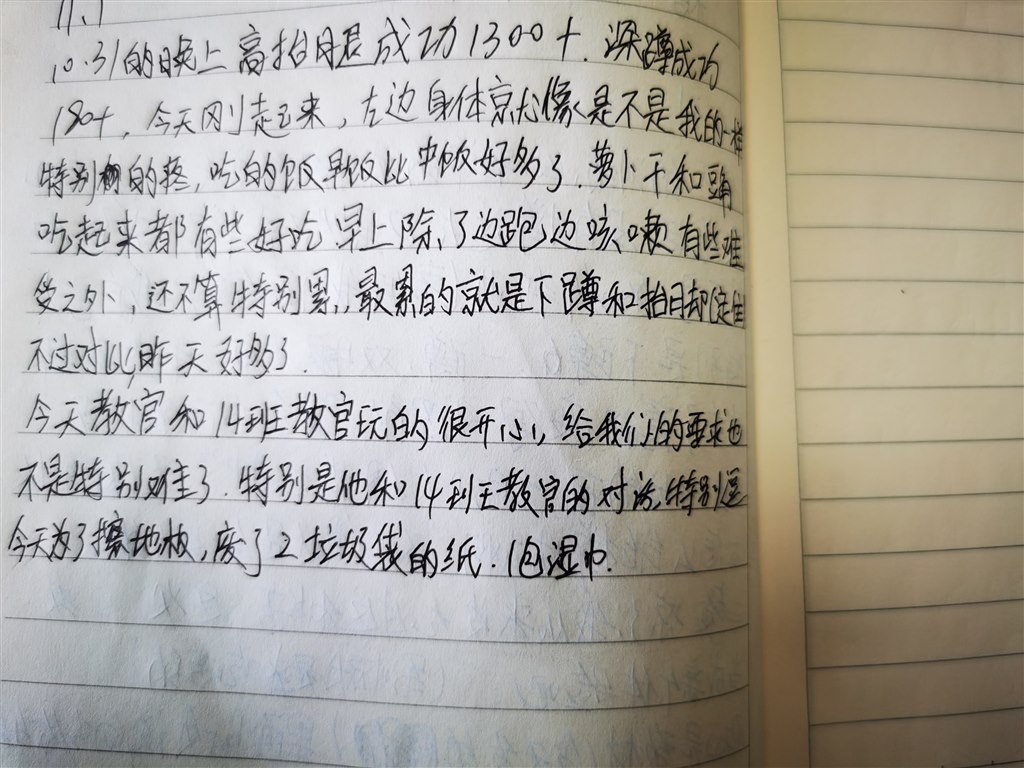 11.1
10.31的晚上高抬腿成功1300+.深蹲成功
180+,今天刚起来,左边身体就像是不是我的一样
特别的疼,吃的饭早饭比中饭好多了.萝卜干和豆角
吃起来都有些好吃早上除了边跑边咳嗽有些难
受之外,还不算特别累,最累的就是下蹲和抬腿定住
不过对比昨天好多了.
今天教官和14班教官玩的很开心,给我们的要求也
不是特别难了.特别是他和14班教官的对话,特别逗
今天为了擦地板,废了2垃圾袋的纸.1包湿巾.